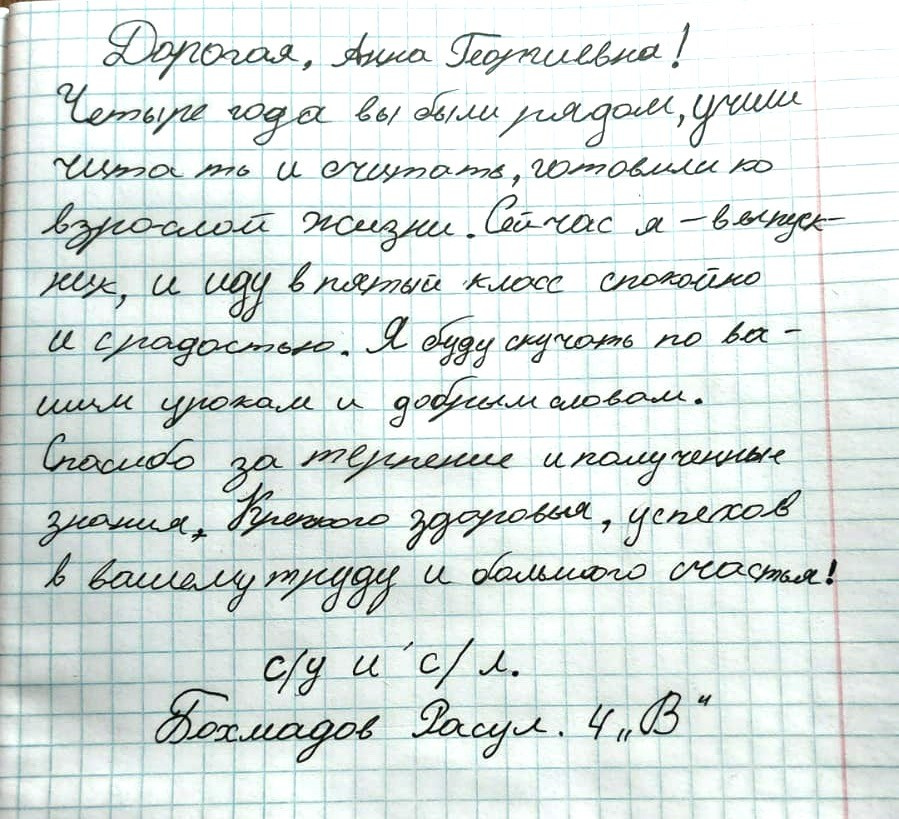 Дорогая, Анна Георгиевна!
Четыре года вы были рядом, учили
чита ть и считать, готовили ко
взрослой жизни. Сейчас я – выпуск-
ник, и иду в пятый класс спокойно
и с радостью. Я буду скучать по ва-
шим урокам и добрым словам.
Спасибо за терпение и полученные
знания, Крепкого здоровья, успехов
в вашему труду и большого счастья!
с/у и с/л.
Бохмадов Расул. 4 „В“